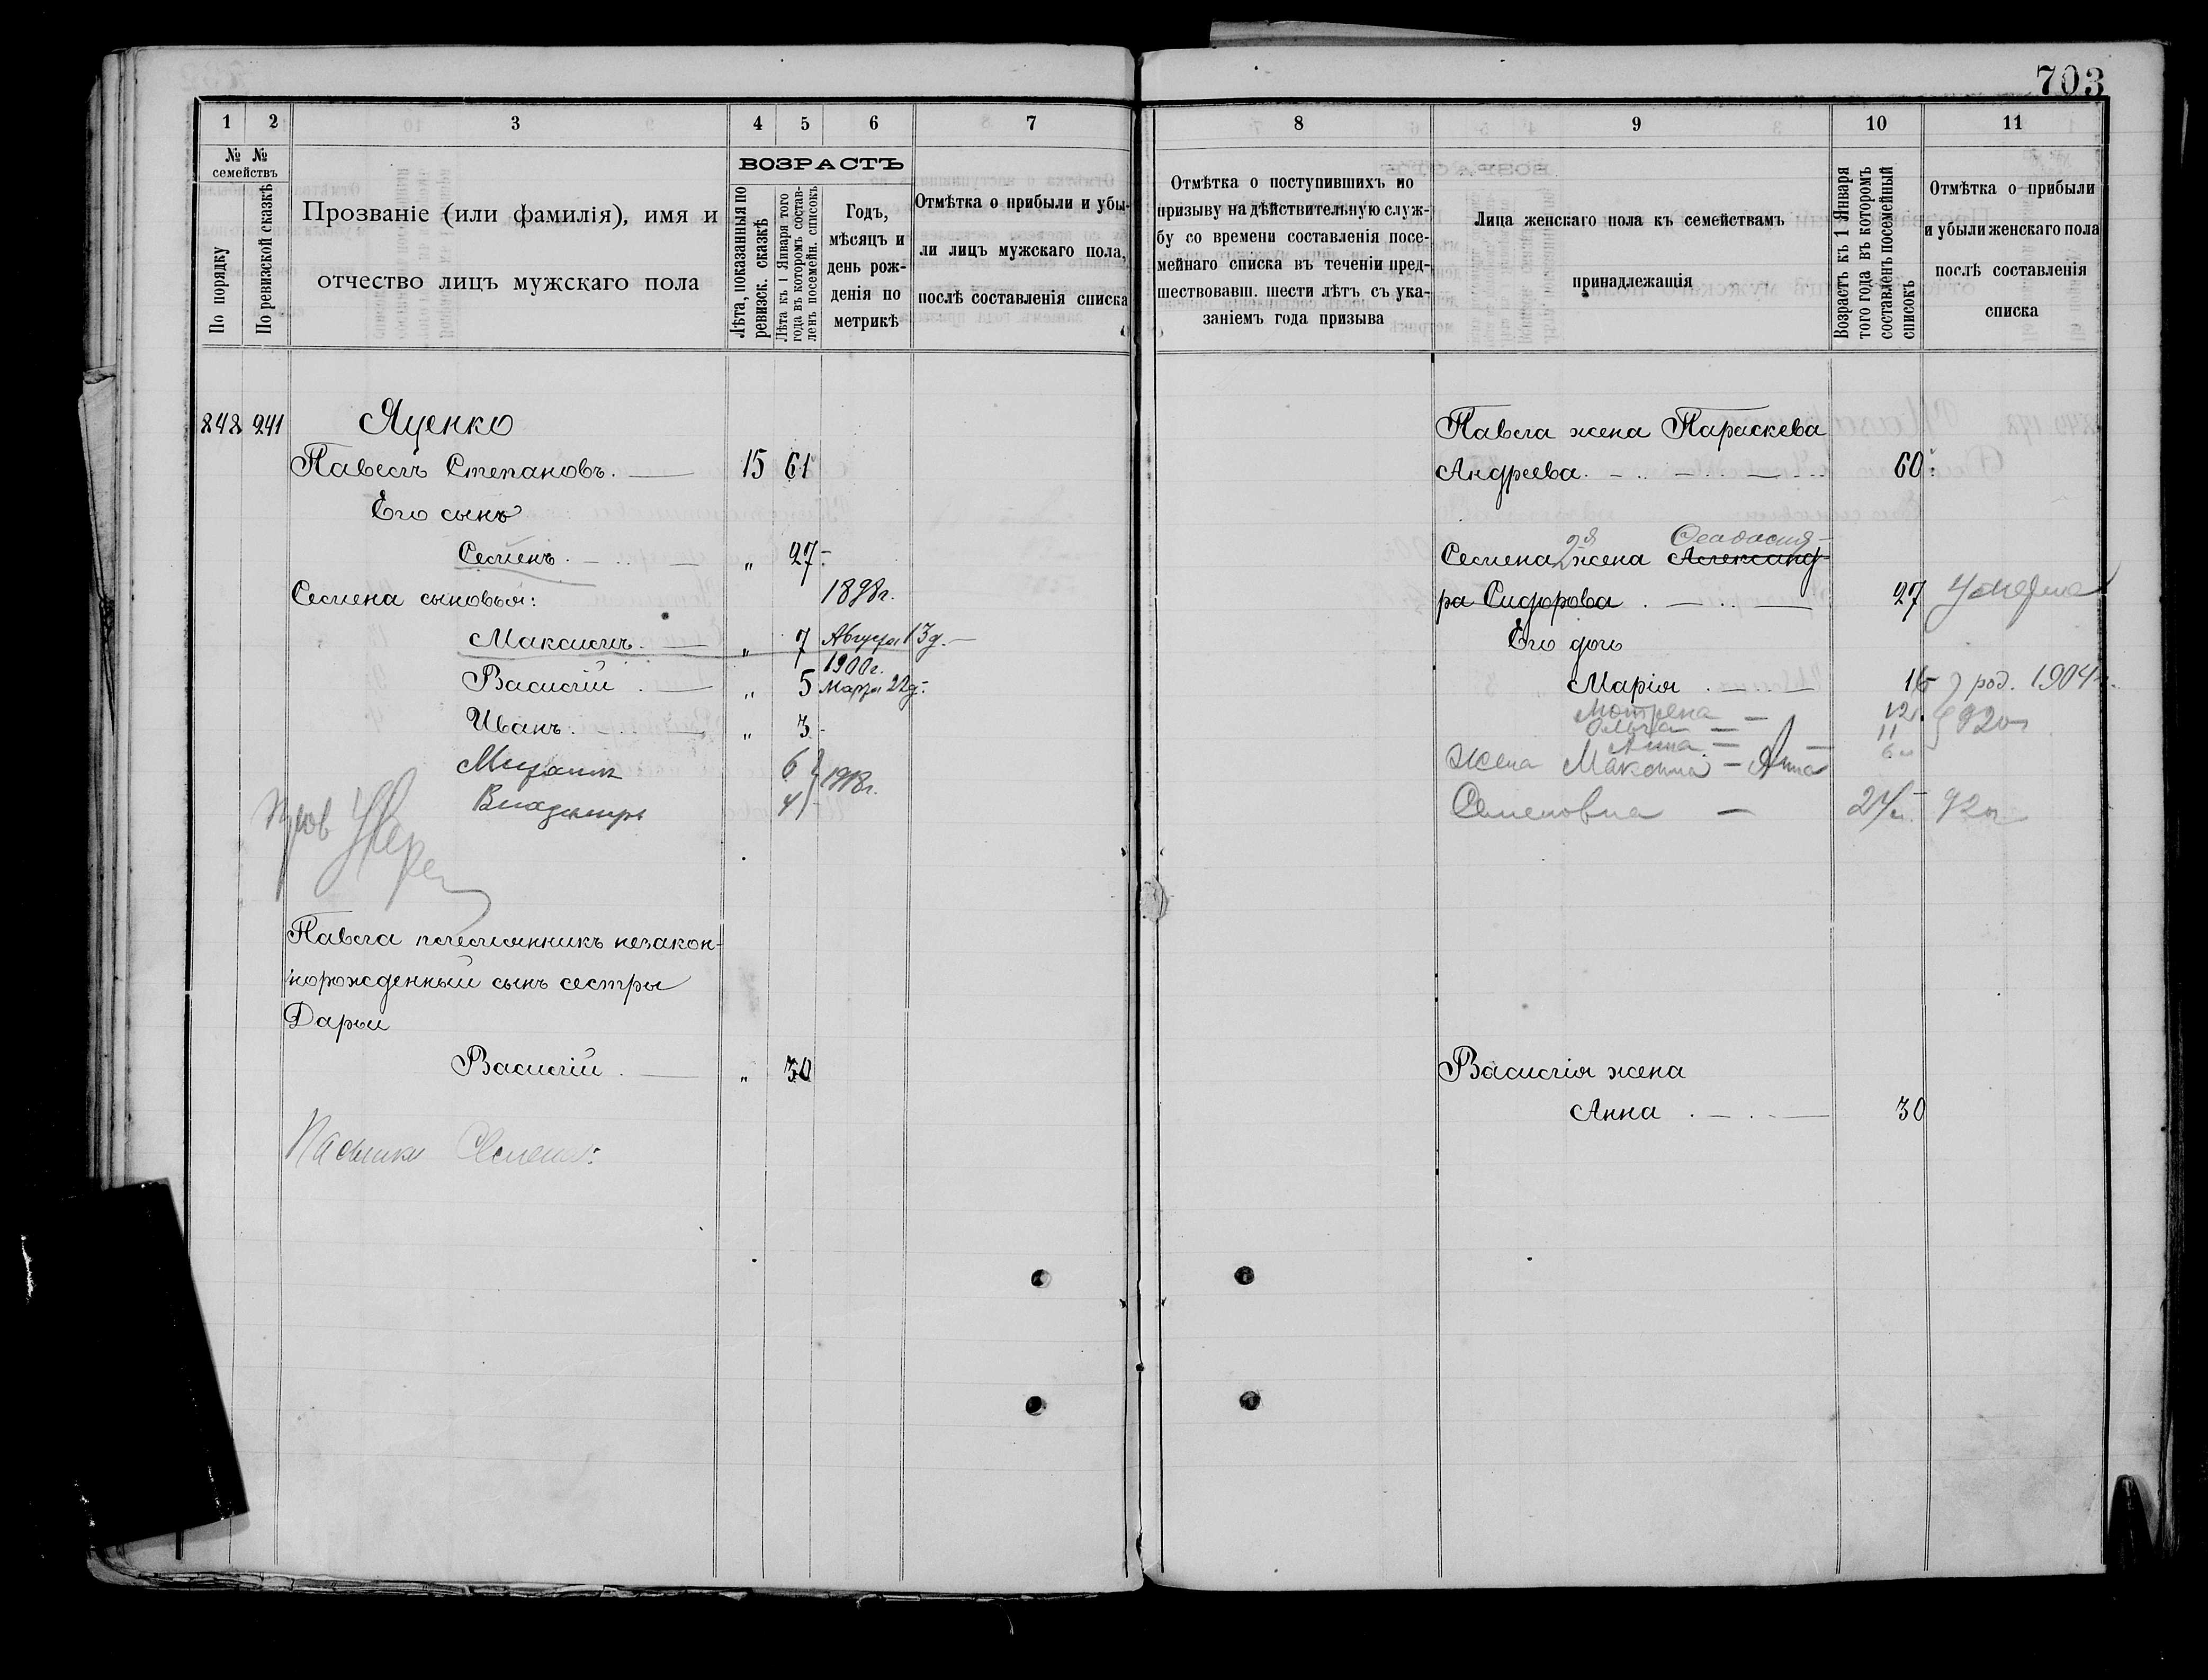 703
1 2 3 4 5 6 7
№ № семействъ
По порядку
По ревизской сказкѣ
Прозваніе (или фамилія), имя и
отчество лицъ мужскаго пола
ВОЗРАСТЪ
Лѣта, показанныя по
ревизск. сказкѣ
Лѣта къ 1 Января того
года въ которомъ состав-
ленъ посемейн. списокъ
Годъ,
мѣсяцъ и
день рож-
денія по
метрикѣ
Отмѣтка о прибыли и убы-
ли лицъ мужскаго пола,
послѣ составленія списка
848 241 Яценко
Павелъ Степановъ. 15 61
Его сынъ
Семенъ. " 27
Семена сыновья: 1898г.
Максимъ. " 7 Августа 13д.
1900г.
Василій. " 5 Марта 22д.
Иванъ. " 3
Михаилъ 6
1918г.
Владимиръ 4
Павла племянникъ незакон-
норожденный сынъ сестры
Дарьи
Василій. " 30
8 9 10 11
Отмѣтка о поступившихъ по
призыву на дѣйствительную служ-
бу со времени составленія посе-
мейнаго списка въ теченіи пред-
шествовавш. шести лѣтъ съ ука-
заніемъ года призыва
Лица женскаго пола къ семействамъ
принадлежащія
Возрастъ къ 1 Января
того года въ которомъ
составленъ посемейный
списокъ
Отмѣтка о прибыли
и убыли женскаго пола
послѣ составленія
списка
Павла жена Параскева
Андреева. 60
2я Феодосия
Семена жена Александ-
ра Сидорова. 27 умерла
Его дочь
Марія. 16 род. 1904
Мотрена 12
Ольга 11 920г
Анна 6
Жена Максима Анна
Семеновна 24 92
Василія жена
Анна. 30